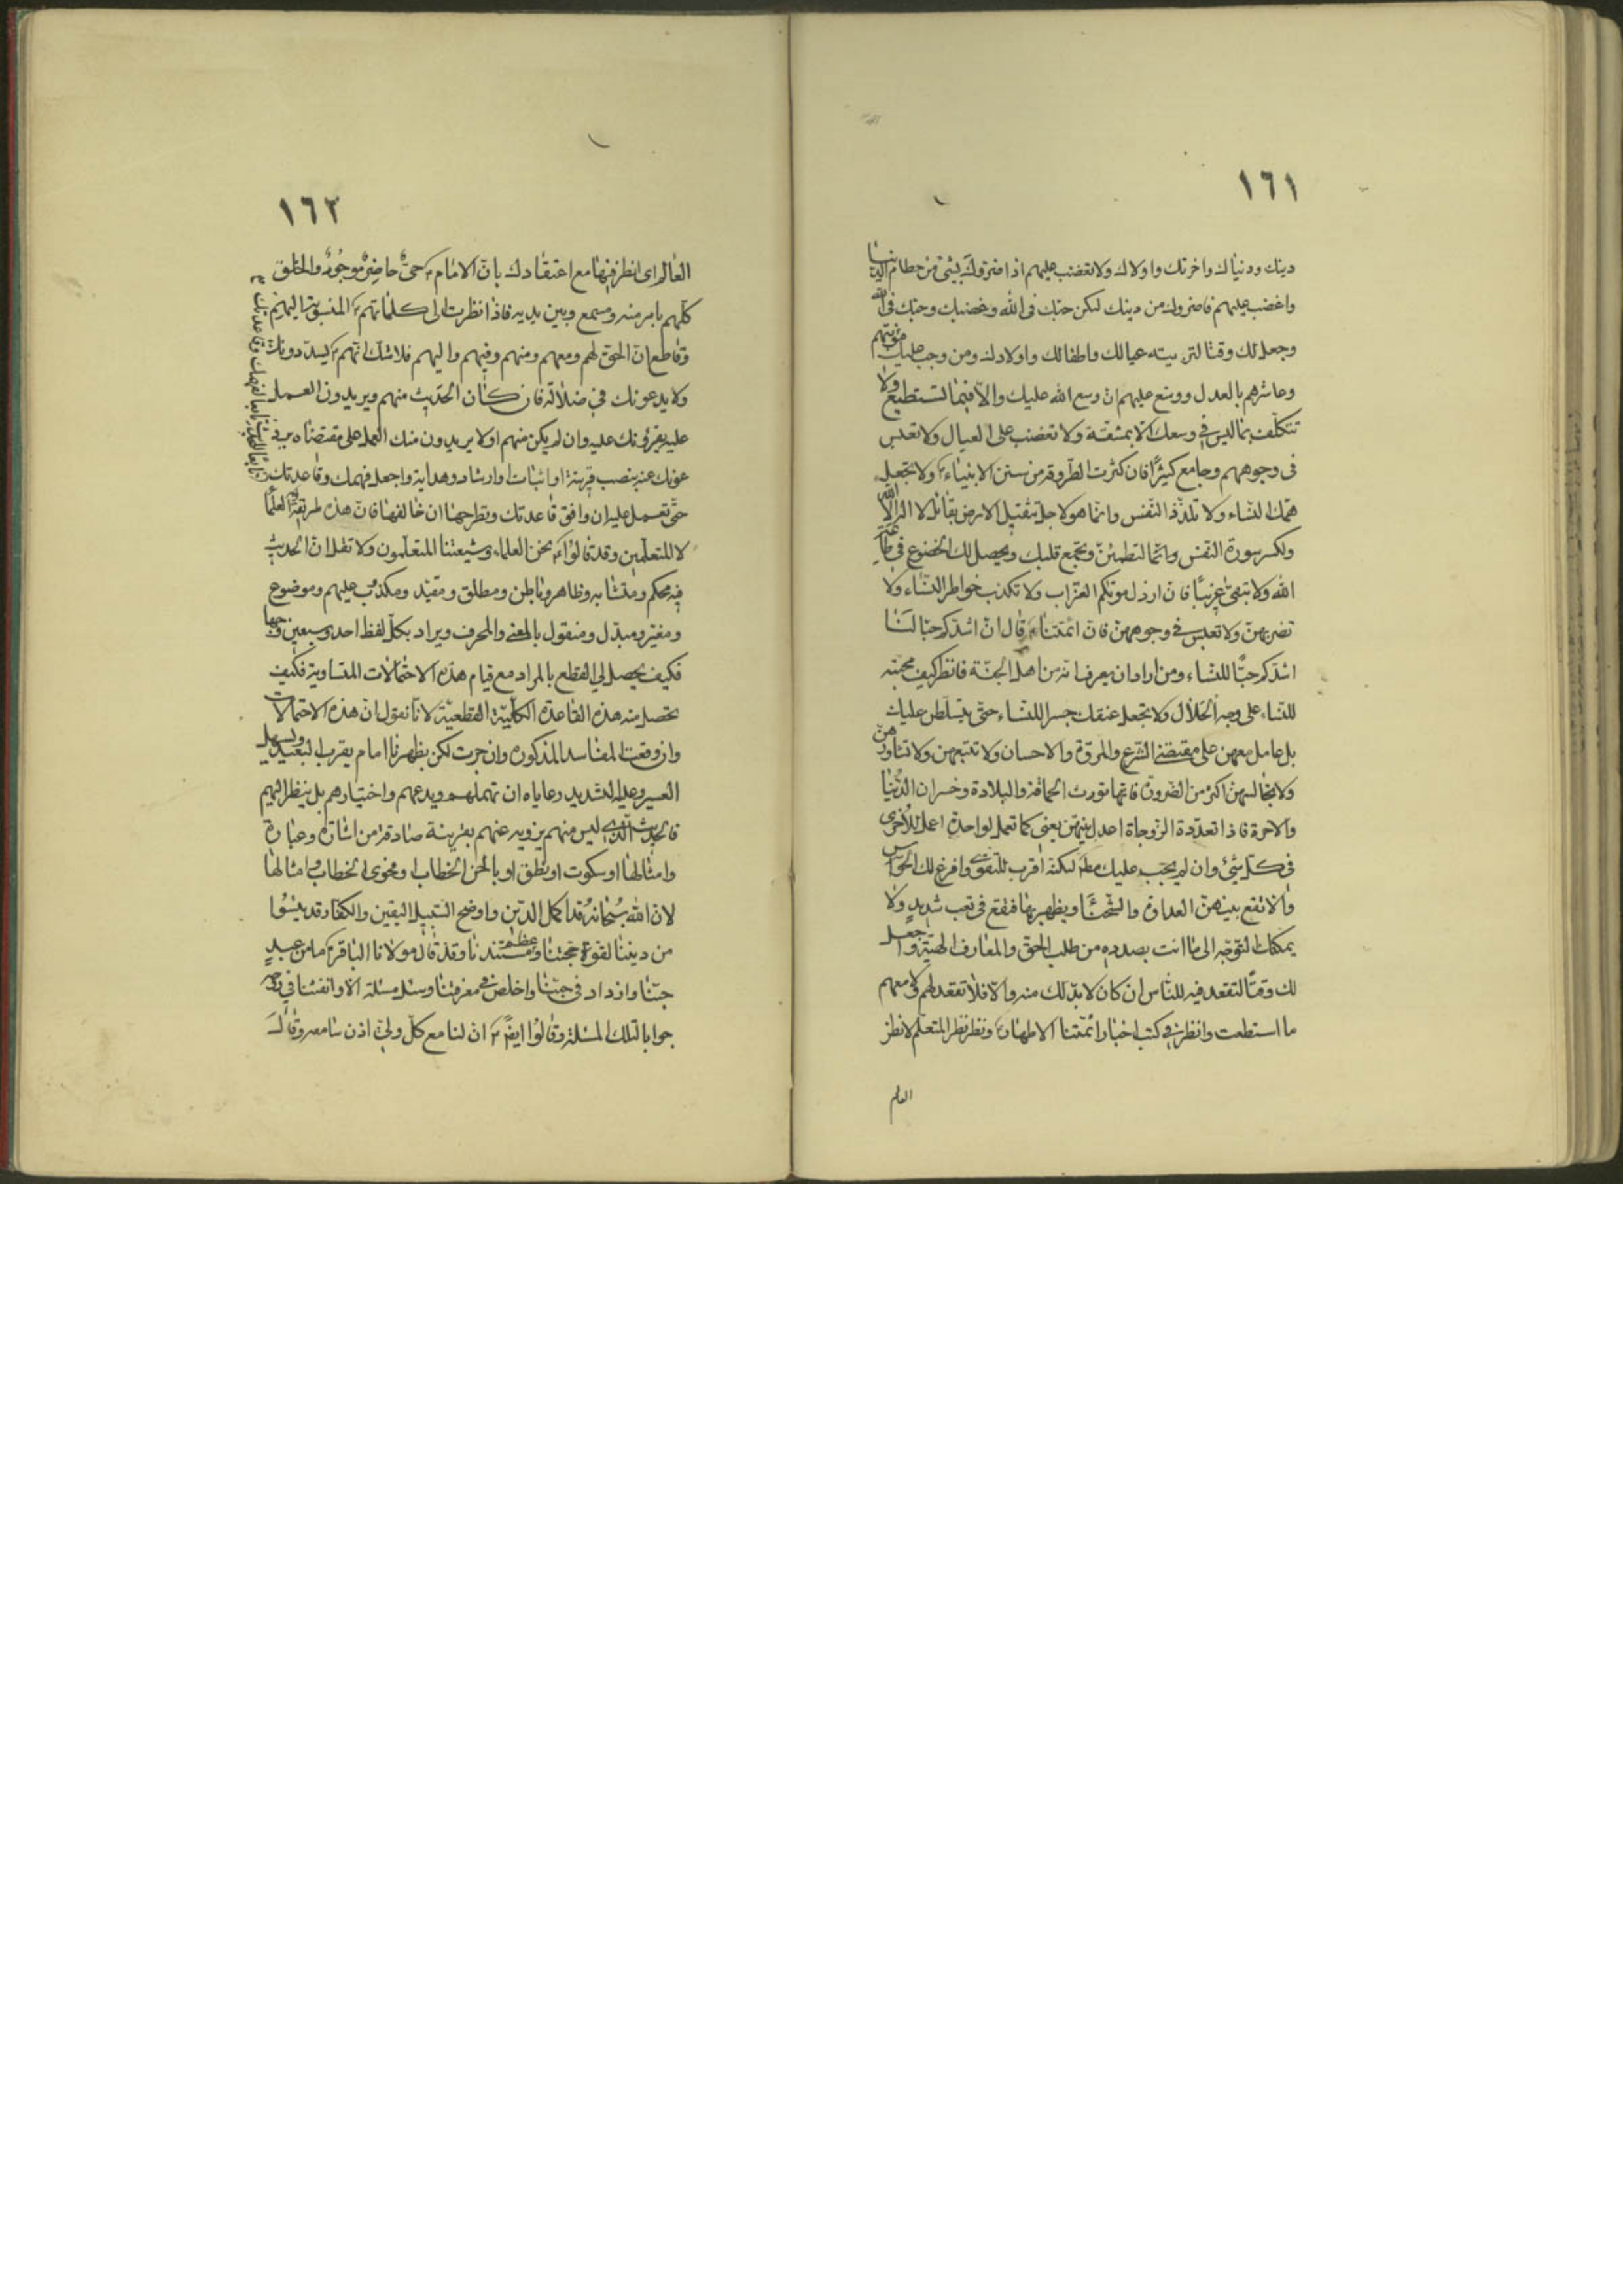 ١٦١
دينك ودنياك واخرتك واولاك ولا تغضب عليهم اذا ضروك بشئ من حطام الدنيا
واغضب عليهم فاضروك من دينك لكن حبك فى الله وغضبك وحبك فى الله
وجعل لك وقتا لتربيته عيالك واطفالك واولادك ومن وجب عليك مؤنتهم
وعاشرهم بالعدل ووسع عليهم ان وسع الله عليك والا فبما تستطيع ولا
تتكلف بما ليس فى وسعك الا بمشقة ولا تغضب على العيال ولا تعبس
فى وجوههم وجامع كثيرًا فان كثرت الطروقة من سنن الانبياء ولا تجعل
همك النساء ولا تلذذ النفس وانما هو لاجل تثقيل الارض بقائل لا اله الا الله
ولكسر سورة النفس وانما لتطمئن وتجمع قلبك ويحصل لك الخضوع فى طاعة
الله ولا تبقى عزبًا فان ارذل موتكم العزاب ولا تكذب خواطر النساء ولا
تضربهن ولا تعبس فى وجوههن فان ائمتنا قال ان اشدكم حبا لنا
اشدكم حبًا للنساء ومن اراد ان يعرف انه من اهل الجنة فانظر كيف محبته
للنساء على وجه الحلال ولا تجعل عنقك جسرا للنساء حتى يتسلطن عليك
بل عامل معهن على مقتضى الشرع والمروة والاحسان ولا تتبعهن ولا تشاورهن
ولا تجالسهن اكثر من الضرورة فانها تورث الحماقة والبلادة وخسران الدنيا
والاخرة فاذا تعددة الزوجاة اعدل بينهن يعنى كما تعمل لواحدة اعمل للاخرى
فى كل شئ وان لم يجب عليك لكنه اقرب للتقوى وافرغ لك الحواس
والا تقع بينهن العداوة والشحنا ويظهر بها فتقع فى تعب شديد ولا
يمكنك التوجه الى ما انت بصدده من طلب الحق والمعارف الالهية واجعل
لك وقتًا لتقعد فيه للناس ان كان لا بد لك منه والا فلا تقعد لهم ولا معهم
ما استطعت وانظر فى كتب اخبار ائمتنا الاطهار ونظر نظر المتعلم لا نظر
العالم
١٦٢
العالم اى انظر فيها مع اعتقادك بان الامام حىٌّ حاضرٌ موجودٌ والخلق
كلهم بامر منه ومسمع وبين يديه فاذا نظرت الى كلماتهم المنسوبة اليهم
وقاطع ان الحق لهم ومعهم ومنهم وفيهم واليهم فلا شك انهم يسددونك
ولا يدعونك فى ضلالة فان كان الحديث منهم ويريدون العمل
عليه يقرؤنك عليه وان لم يكن منهم او لا يريدون منك العمل على مقتضاه يرد
عونك عنه بنصب قرينة او اثبات وارشاد وهداية واجعل فهمك وقاعدتك
حتى تعمل عليه ان وافق قاعدتك وتطرحها ان خالفها فان هذه طريقة العلما
لا المتعلمين وقد قالوا نحن العلماء وشيعتنا المتعلمون ولا تقل ان الحديث
فيه محكم ومتشابه وظاهر وباطن ومطلق ومقيد ومكذب عليهم وموضوع
ومغير ومبدل ومنقول بالمعنى والمحرف ويراد بكل لفظ احد وسبعين وجها
فكيف يحصل لى القطع بالمراد مع قيام هذه الاحتمالات المتساوية فكيف
تحصل منه هذه القاعدة الكلية القطعية لانا نقول ان هذه الاحتمالات
وان وقعت المفاسد المذكورة وان جرت لكن يظهرنا امام يقرب البعيد ويسهل
العسير وعلى الشديد رعاياه ان تهملهم ويدعهم واختيارهم بل ينظر اليهم
فالحديث الذى ليس منهم يزويه عنهم بقرينة صادقة من اشارة وعبارة
وامثالها او سكوت او نطق او بالحن الخطاب او فحوى الخطاب وامثالها
لان الله سبحانه قد اكمل الدين واوضح السبيل اليقين والكفار قد يئسوا
من ديننا لقوة حجتنا وعظم مستندنا وقد قال مولانا الباقر ما من عبد
حبنا وازداد فى حبنا واخلص فى معرفتنا وسئل مسئلة الا ونفثنا فى روعه
جوابا لتلك المسئلة وقالوا ايضًا ان لنا مع كل ولى اذن سامعة وقال